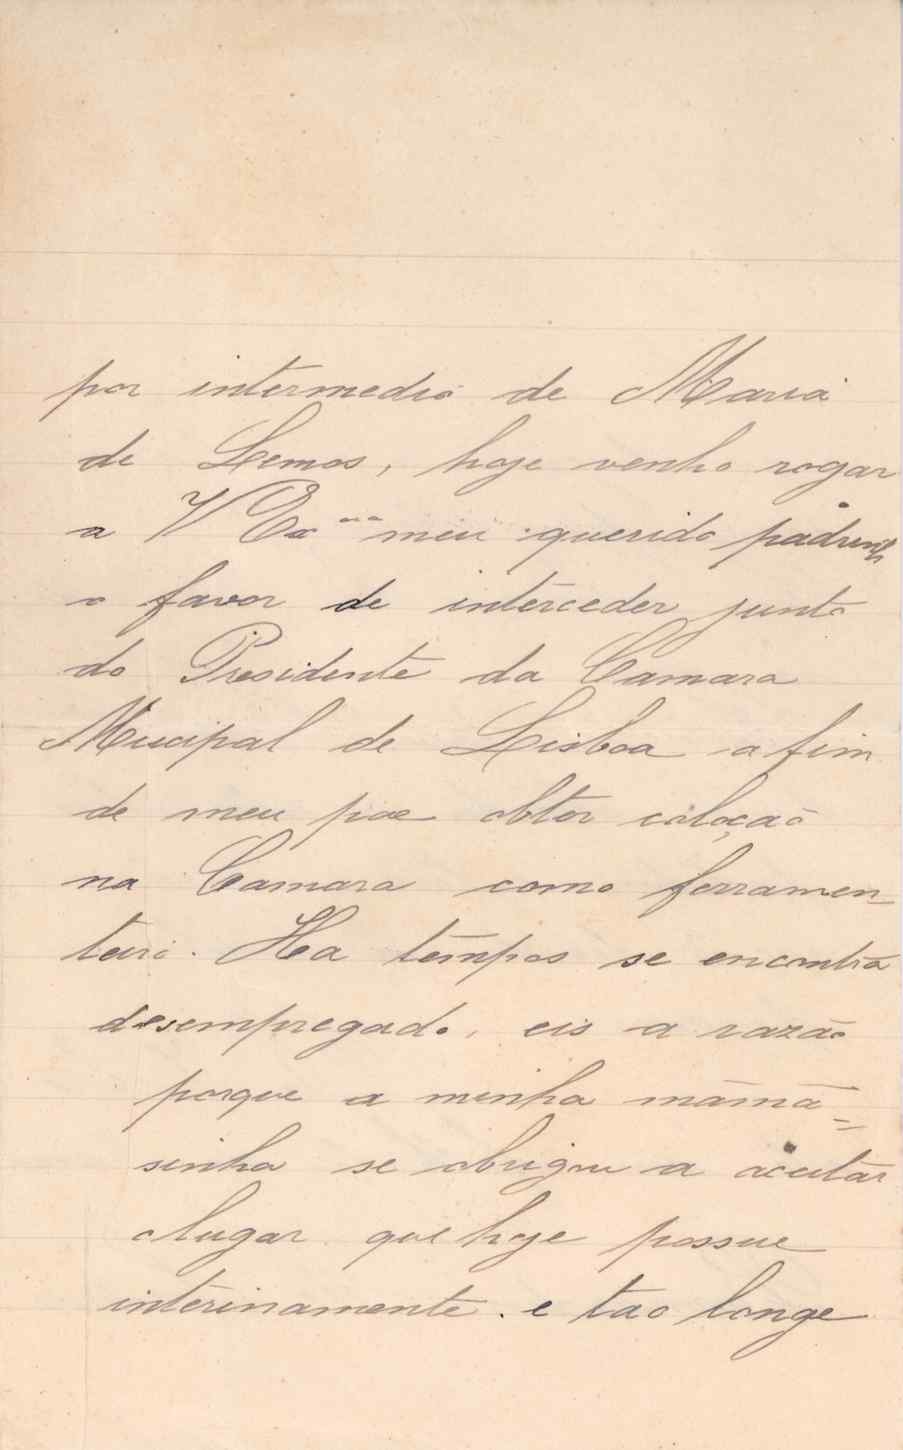 por intermedio de Maria
de Lemos, hoje venho rogar
a V Exª meu querido padrinho
o favor de interceder junto
do Presidente da Camara
Mucipal de Lisboa a fim
de meu pae obter colocação
na Camara como ferramen-
teiro. Ha tempos se encontra
desempregado, eis a razão
porque a minha māmā=
sinha se obrigou a aceitar
o lugar que hoje possue
interinamente. e tão longe